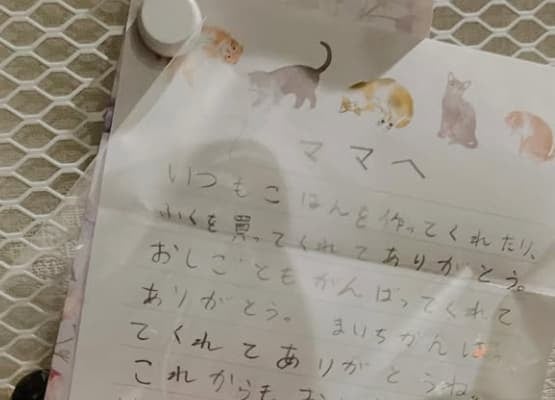 ママへ
いつもごはんを作ってくれたり、
ふくを買ってくれてありがとう。
おしごともがんばってくれて
ありがとう。まいにちがんばっ
てくれてありがとうね。
これからも